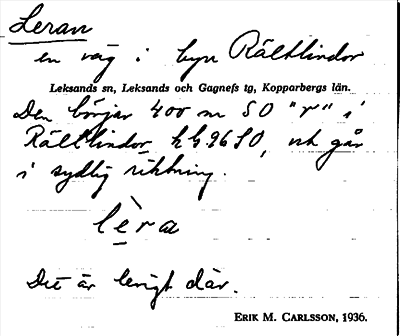 Leran
en väg i byn Rältlindor
Leksands sn, Leksands och Gagnefs tg, Kopparbergs län.
Den börjar 400 m SO "r" i
Rältlindor kb 96 SO, och går
i sydlig riktning.
lèra
Det är lerigt där.
ERIK M. CARLSSON, 1936.